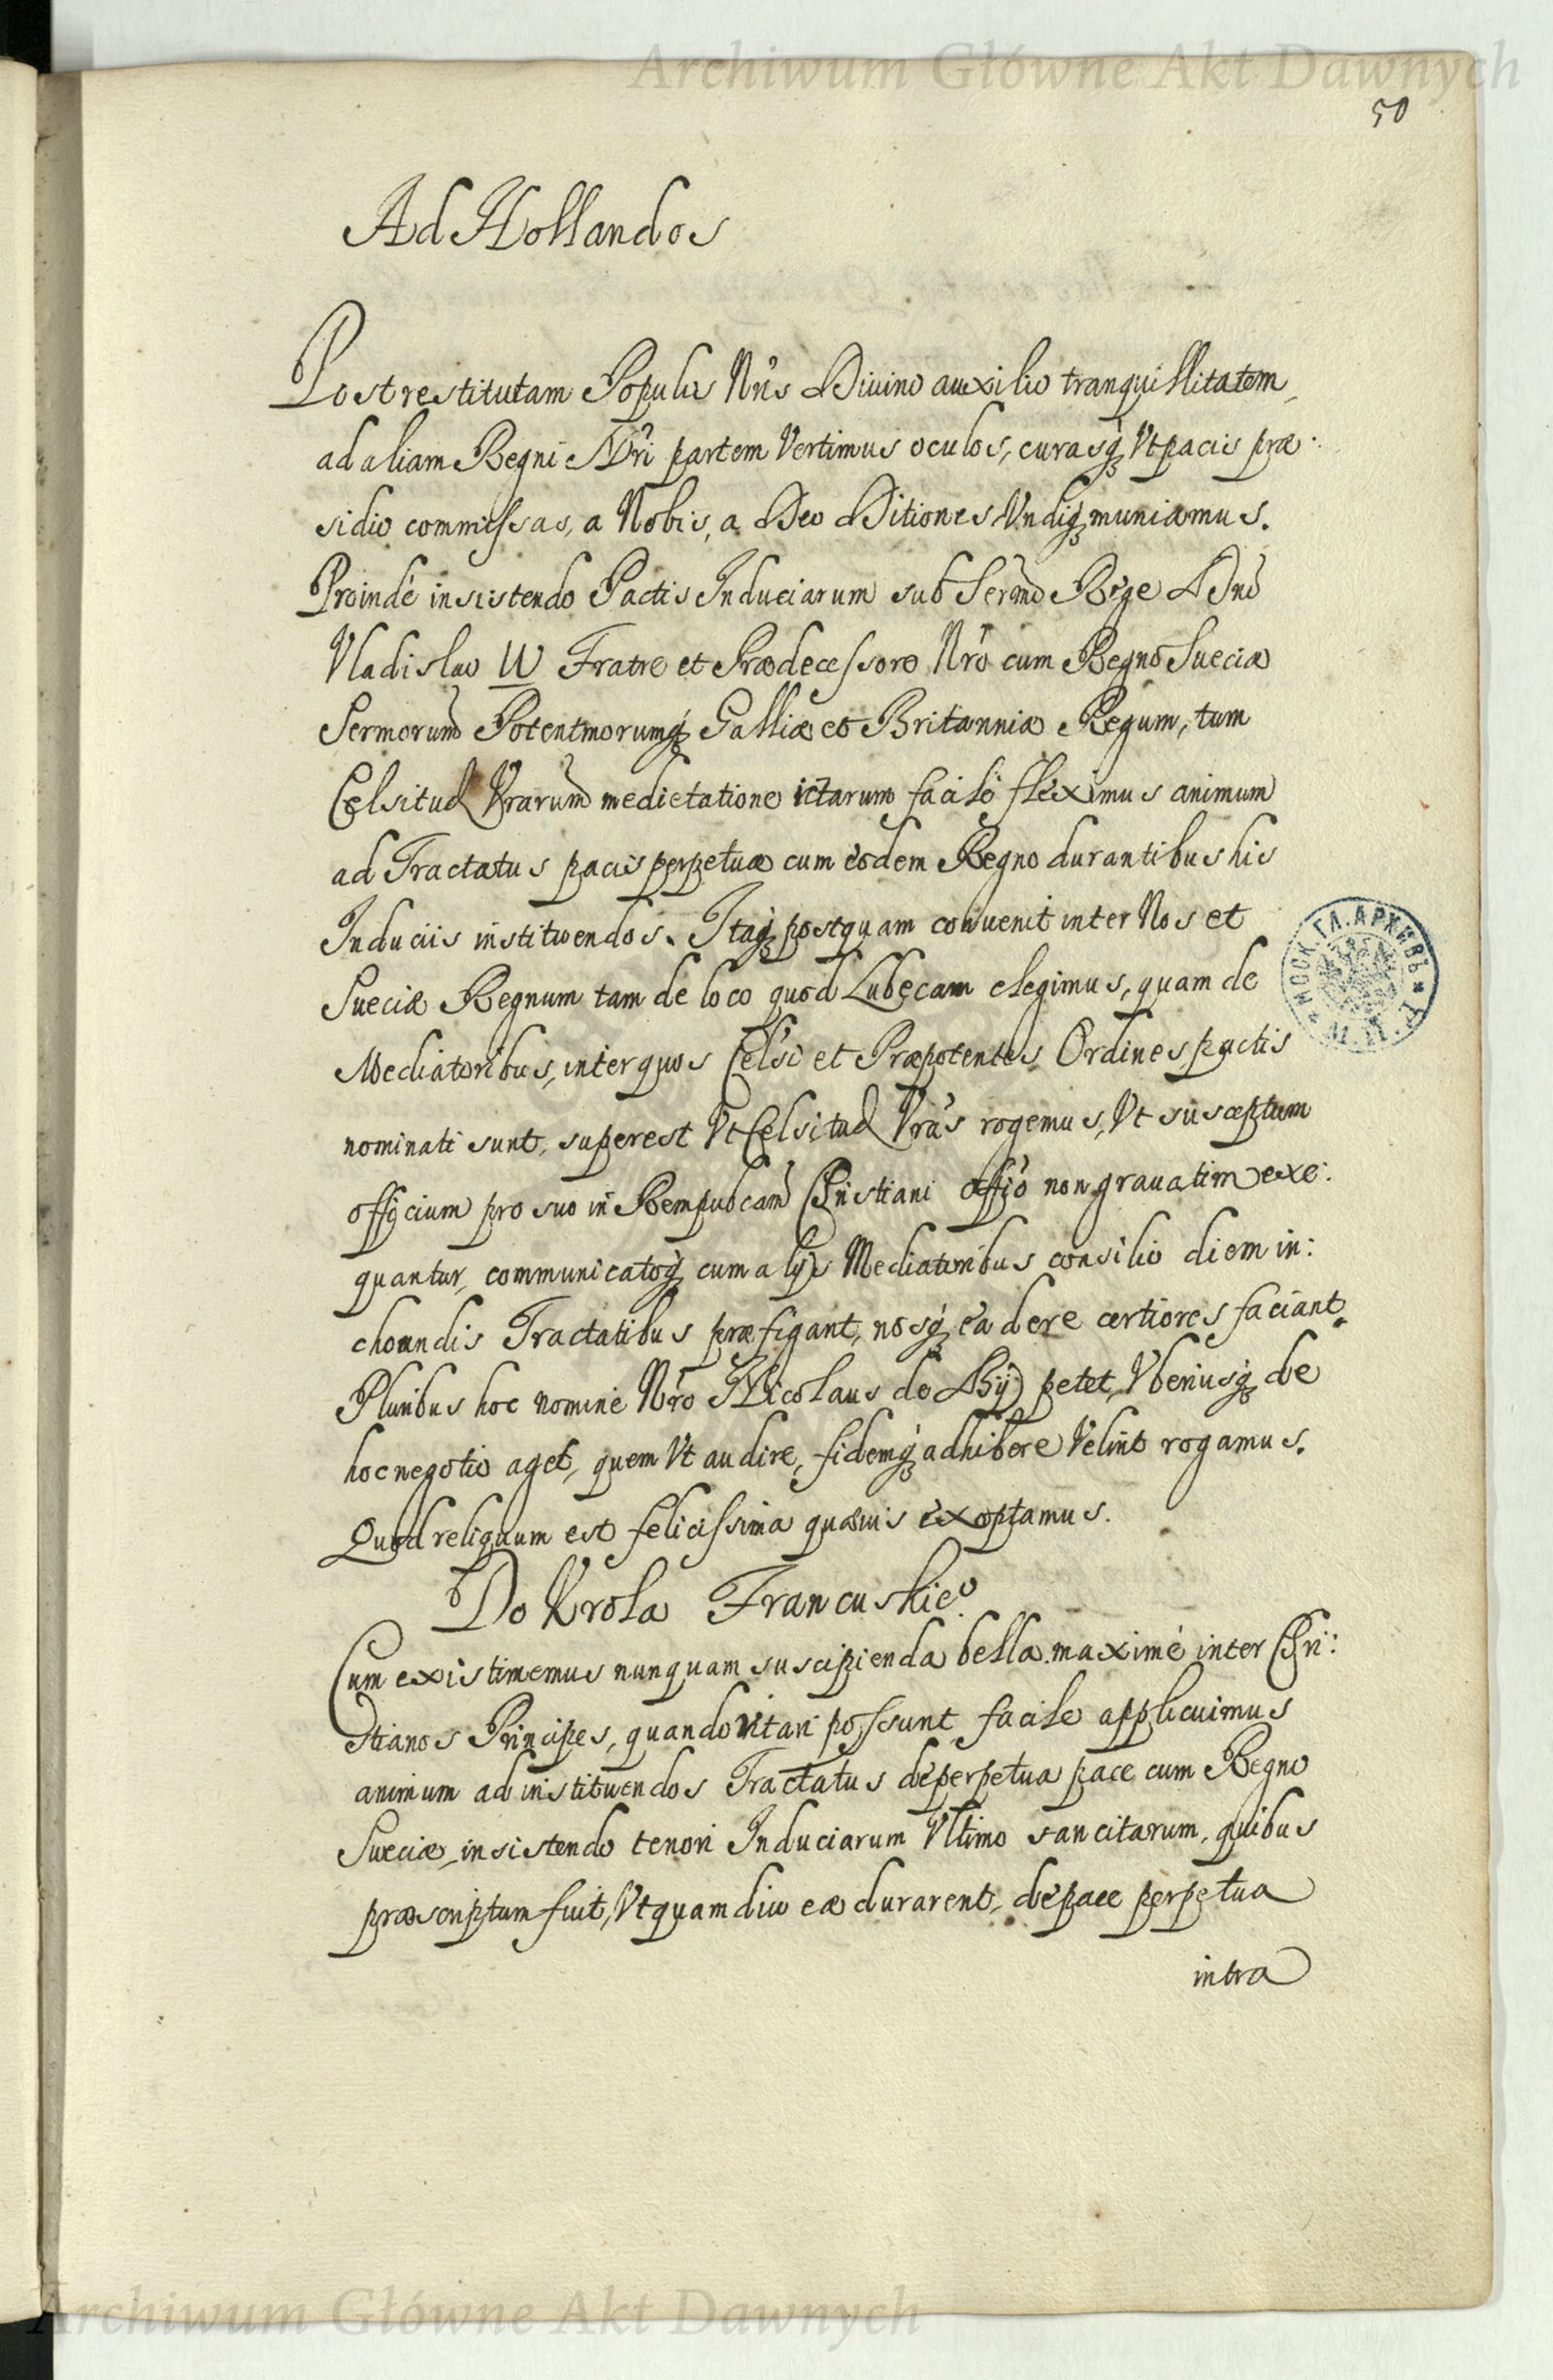 Archiwum Główne Akt Dawnych
50
Ad Hollandos
Post restitutam Populis Nris Diuino auxilio tranquillitatem,
ad aliam Regni Nri partem Vertimus oculos, curasq́ Vt pacis præ:
sidio commissas, a Nobis, a Deo Ditiones Vndiq́ muniamus.
Proindè insistendo Pactis Induciarum sub Sermo Rege Dno
Vladislao IV Fratre et Prædecessore Nro cum Regno Sueciæ
Sermorum Potentmorumq́ Galliæ et Britanniæ Regum, tum
Celsitud Vrarum medietatione ictarum facilè flèximus animum
ad Tractatus pacis perpetuæ cum eodem Regno durantibus his
Induciis instituendos. Itaq́ postquam conuenit inter Nos et
Sueciæ Regnum tam de loco quod Lubecam elegimus, quam de
Mediatoribus, inter quos Celsi et Præpotentes Ordines pactis
nominati sunt, superest Vt Celsitud Vras rogemus, Vt susceptum
officium pro suo in Rempubcam Christiani affõ non grauatim exe:
quantur, communicatoq́ cum alijs Mediatoribus consilio diem in:
choandis Tractatibus præfigant, nosq́ ea de re certiores faciant.
Pluribus hoc nomine Nro Nicolaus de Bij petet, Vberiusq́ de
hoc negotio aget, quem Vt audire, fidemq́ adhibere Velint rogamus.
Quod reliquum est felicissima quæuis exoptamus.
Do Krola Francuskie°.
Cum existimemus nunquam suscipienda bella maximè inter Chri:
stianos Principes, quando vitari possunt facile applicuimus
animum ad instituendos Tractatus de perpetua pace cum Regno
Sueciæ, insistendo tenori Induciarum Vltimo sancitarum, quibus
præscriptum fuit, Vt quamdiu eæ durarent, de pace perpetua
intra
МОСК. ГЛ. АРХИВЪ
Archiwum Główne Akt Dawnych